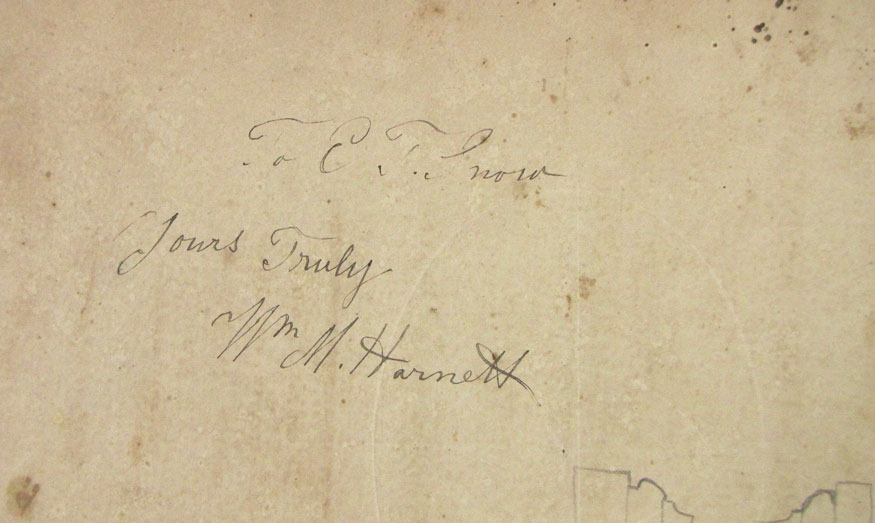 To E. T. Snow
Yours Truly
Wm M. Harnett